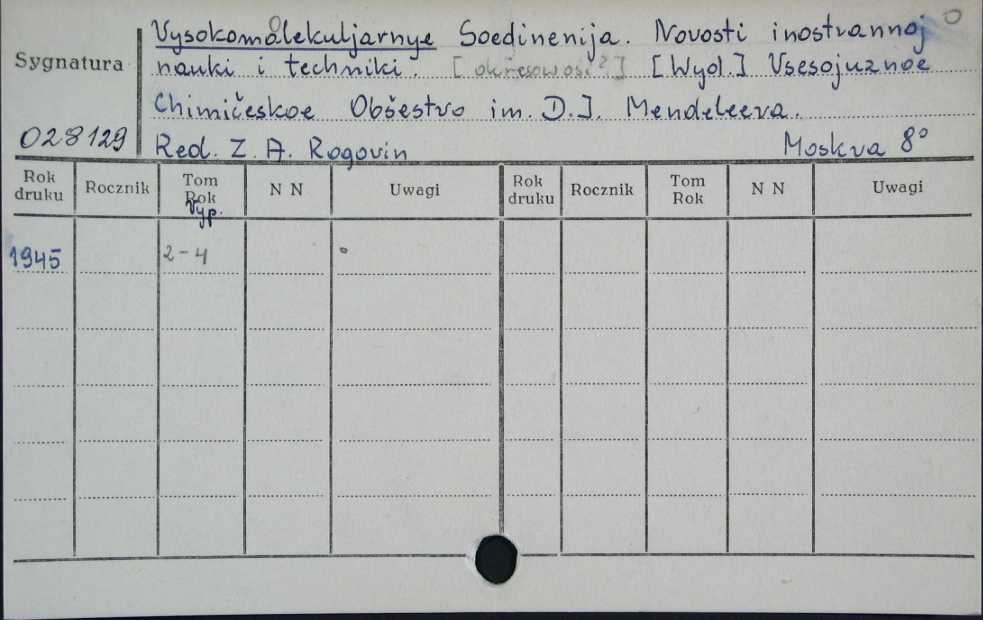 Vysokomolekuljarnye Soedinenija. Novosti inostrannoj
nauki i techniki. [okresowość?] [Wyd.] Vsesojuznoe
Chimičeskoe Obšestvo im. D.I. Mendeleeva.
Red. Z. A. Rogovin Moskva 8°
Sygnatura
028129
Rok druku Rocznik Tom Rok Vyp. N N Uwagi Rok druku Rocznik Tom Rok N N Uwagi
1945 2-4